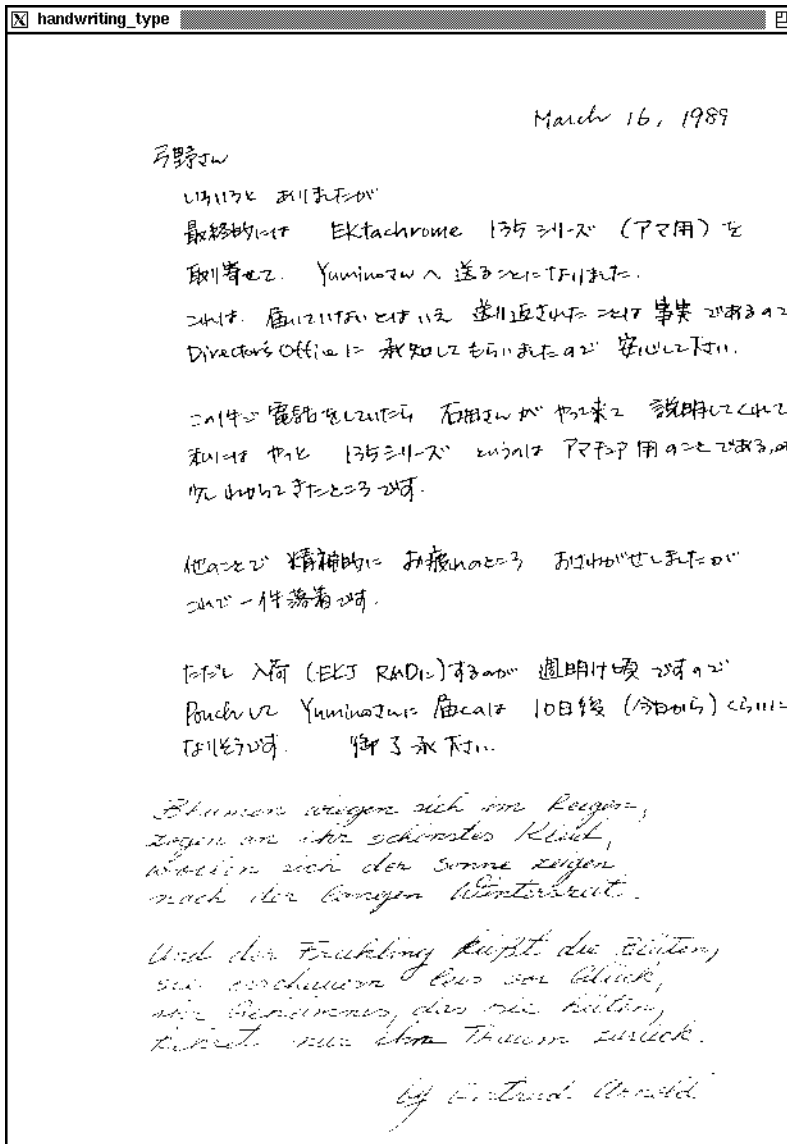 handwriting_type
March 16, 1989
弓野さん
いろいろと ありましたが
最終的には EKtachrome 135シリーズ (アマ用) を
取り寄せて. Yuminoさんへ 送ることになりました.
これは. 届いていないとはいえ 送り返されたことは 事実 であるので
Director's Officeに 承知してもらいましたので 安心して下さい.
この件で 電話をしていたら 石田さんが やって来て 説明してくれて
私には やっと 135シリーズ というのは アマチュア用のことである,
少しわかってきたところです.
他のことで 精神的に お疲れのところ おさわがせしましたが
これで 一件落着です.
ただし 入荷 (EKJ R&Dに)するのが 週明け頃 ですので
Pouchして Yuminoさんに 届くのは 10日後 (今日から) くらいに
なりそうです. 御了承下さい.
Blumen wiegen sich im Reigen,
zogen an ihr schönstes Kleid,
wollen sich der Sonne zeigen
nach der langen Winterszeit.
Und der Frühling küßt die Blüten,
sie erschauern leis vor Glück,
das sie hüten,
nur ihm Traum zurück.
by Gertrud Arnold